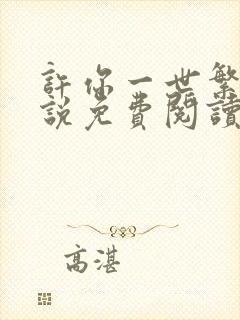 許你一世繁
說免費閱讀
高湛